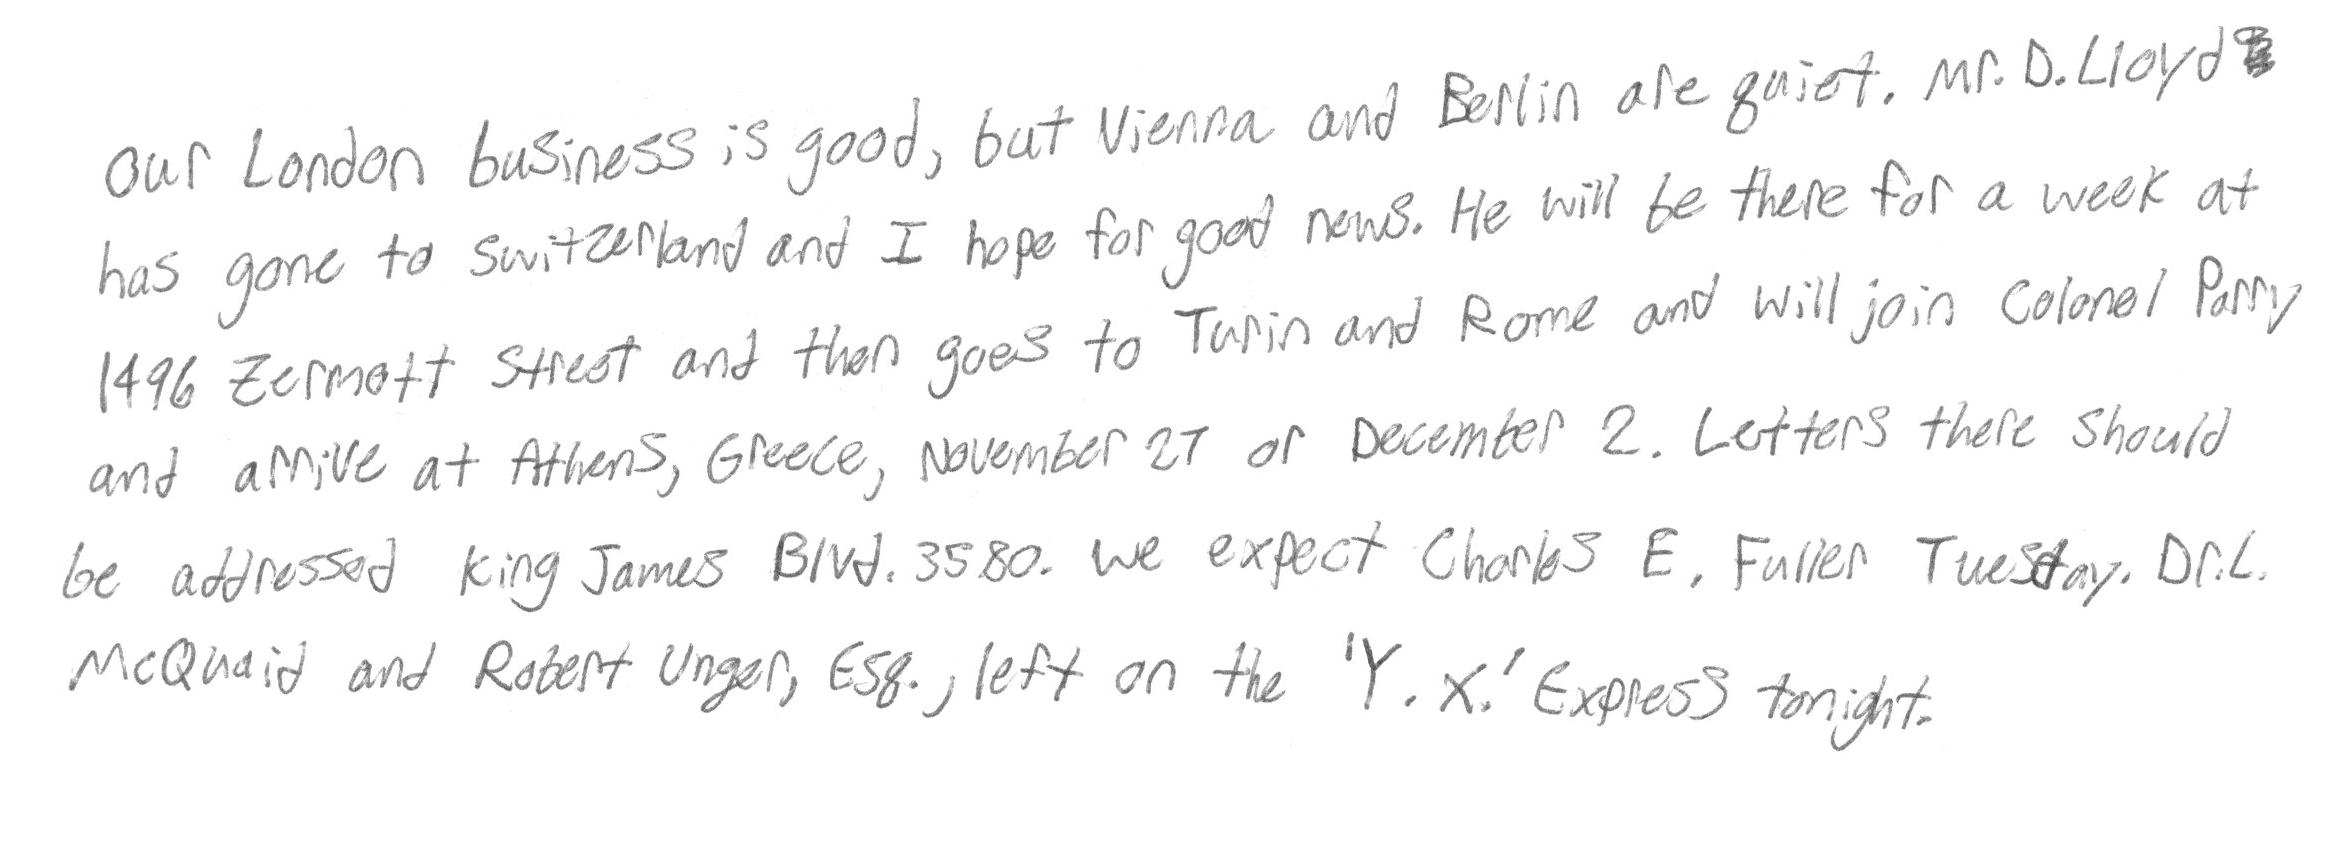 Our London business is good, but Vienna and Berlin are quiet. Mr. D. Lloyd
has gone to Switzerland and I hope for good news. He will be there for a week at
1496 Zermott Street and then goes to Turin and Rome and will join Colonel Parry
and arrive at Athens, Greece, November 27 or December 2. Letters there should
be addressed King James Blvd. 3580. We expect Charles E. Fuller Tuesday. Dr. L.
McQuaid and Robert Unger, Esq., left on the 'Y. X.' Express tonight.